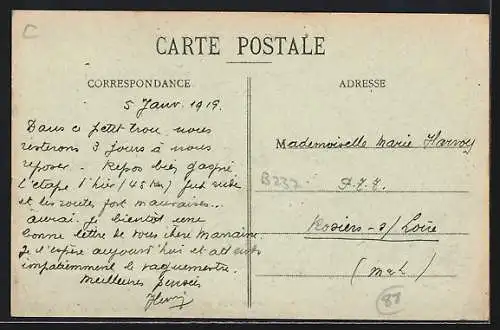 C
CARTE POSTALE
CORRESPONDANCE
ADRESSE
5 Janv. 1919.
Dans ce petit trou nous
resterons 3 jours à nous
reposer. Repos bien gagné
L'étape d'hier (45 km) fut rude
et les routes fort mauvaises...
aurai-je bientôt une
bonne lettre de vous chère Marraine
Je l'espère aujourd'hui et attends
impatiemment le vaguemestre.
Meilleures pensées
Henry
Mademoiselle Marie
B232
P.T.T.
Rosiers-s/Loire
(M&L)